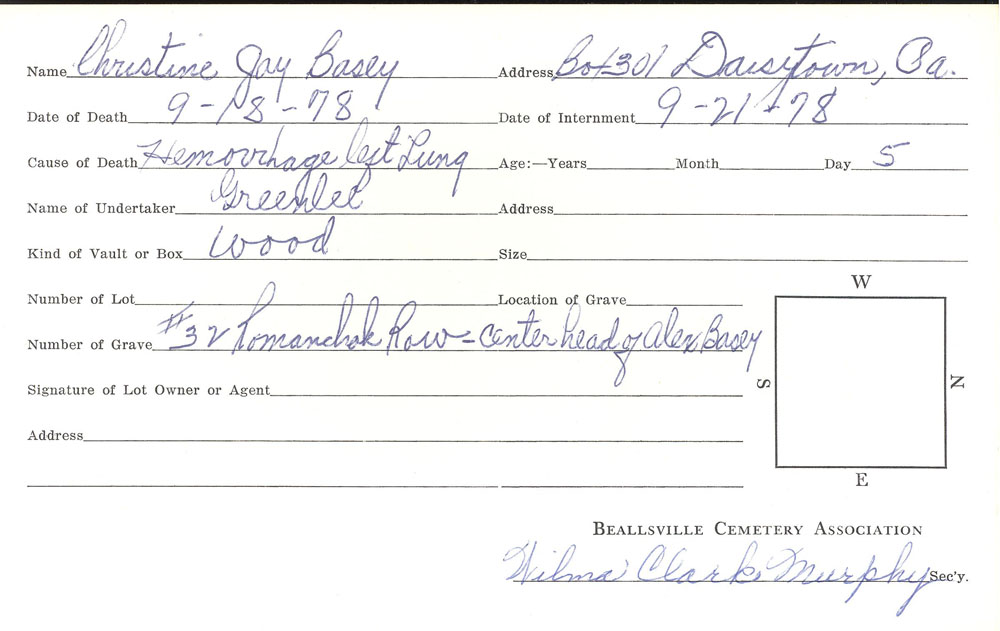 Name Christine Jay Basey Address Box 301 Daisytown, Pa.
Date of Death 9-18-78 Date of Internment 9-21-78
Cause of Death Hemorrhage left Lung Age:—Years Month Day 5
Name of Undertaker Greenlee Address
Kind of Vault or Box Wood Size
Number of Lot Location of Grave
W
Number of Grave #32 Romanchak Row - center head of Alex Basey
S N
Signature of Lot Owner or Agent
Address
E
BEALLSVILLE CEMETERY ASSOCIATION
Wilma Clark Murphy Sec'y.